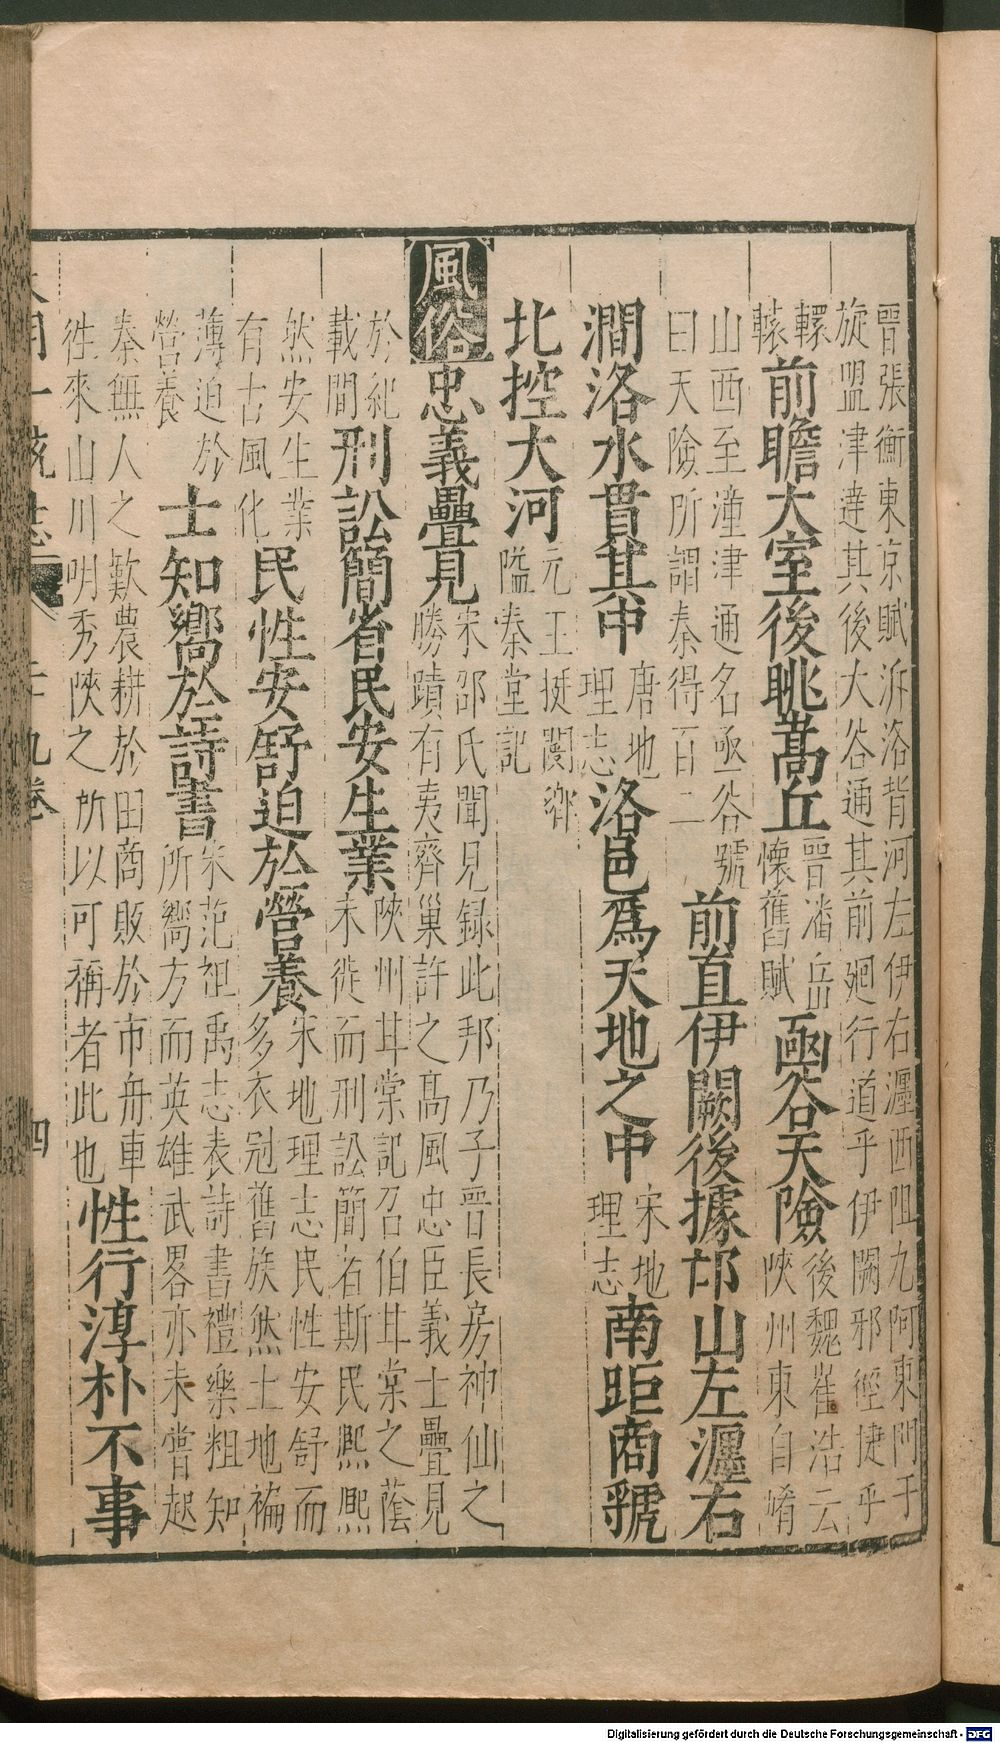 晉張衡東京賦泝洛背河左伊右瀍西阻九阿東門于
旋盟津達其後大谷通其前廻行道乎伊闕邪徑捷乎
轘轅前瞻大室後眺嵩丘晉潘岳懷舊賦凾谷天險後魏崔浩云陝州東自崤
山西至潼津通名凾谷號曰天險所謂秦得百二前直伊闕後據邙山左瀍右
澗洛水貫其中唐地理志洛邑爲天地之中宋地理志南距商虢
北控大河元王挺閿鄉隘秦堂記
風俗忠義疊見宋邵氏聞見録此邦乃子晉長房神仙之勝蹟有夷齊巢許之高風忠臣義士疊見
於紀載間刑訟簡省民安生業陝州甘棠記召伯甘棠之蔭未徙而刑訟簡省斯民熈熈
然安生業有古風化民性安舒迫於營養宋地理志民性安舒而多衣冠舊族然土地褊
薄迫於營養士知嚮於詩書宋范祖禹志表詩書禮樂粗知所嚮方而英雄武畧亦未嘗起
秦無人之歎農耕於田商販於市舟車往來山川明秀陝之所以可稱者此也性行淳朴不事
明一統志 九卷 四
Digitalisierung gefördert durch die Deutsche Forschungsgemeinschaft - DFG